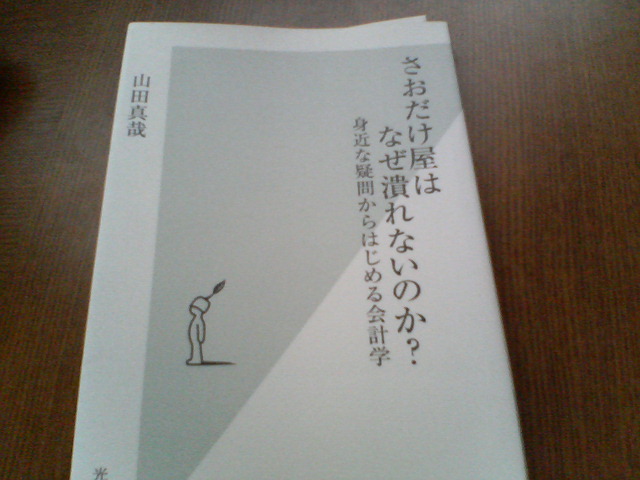 さおだけ屋は
なぜ潰れないのか?
身近な疑問からはじめる会計学
山田真哉
光